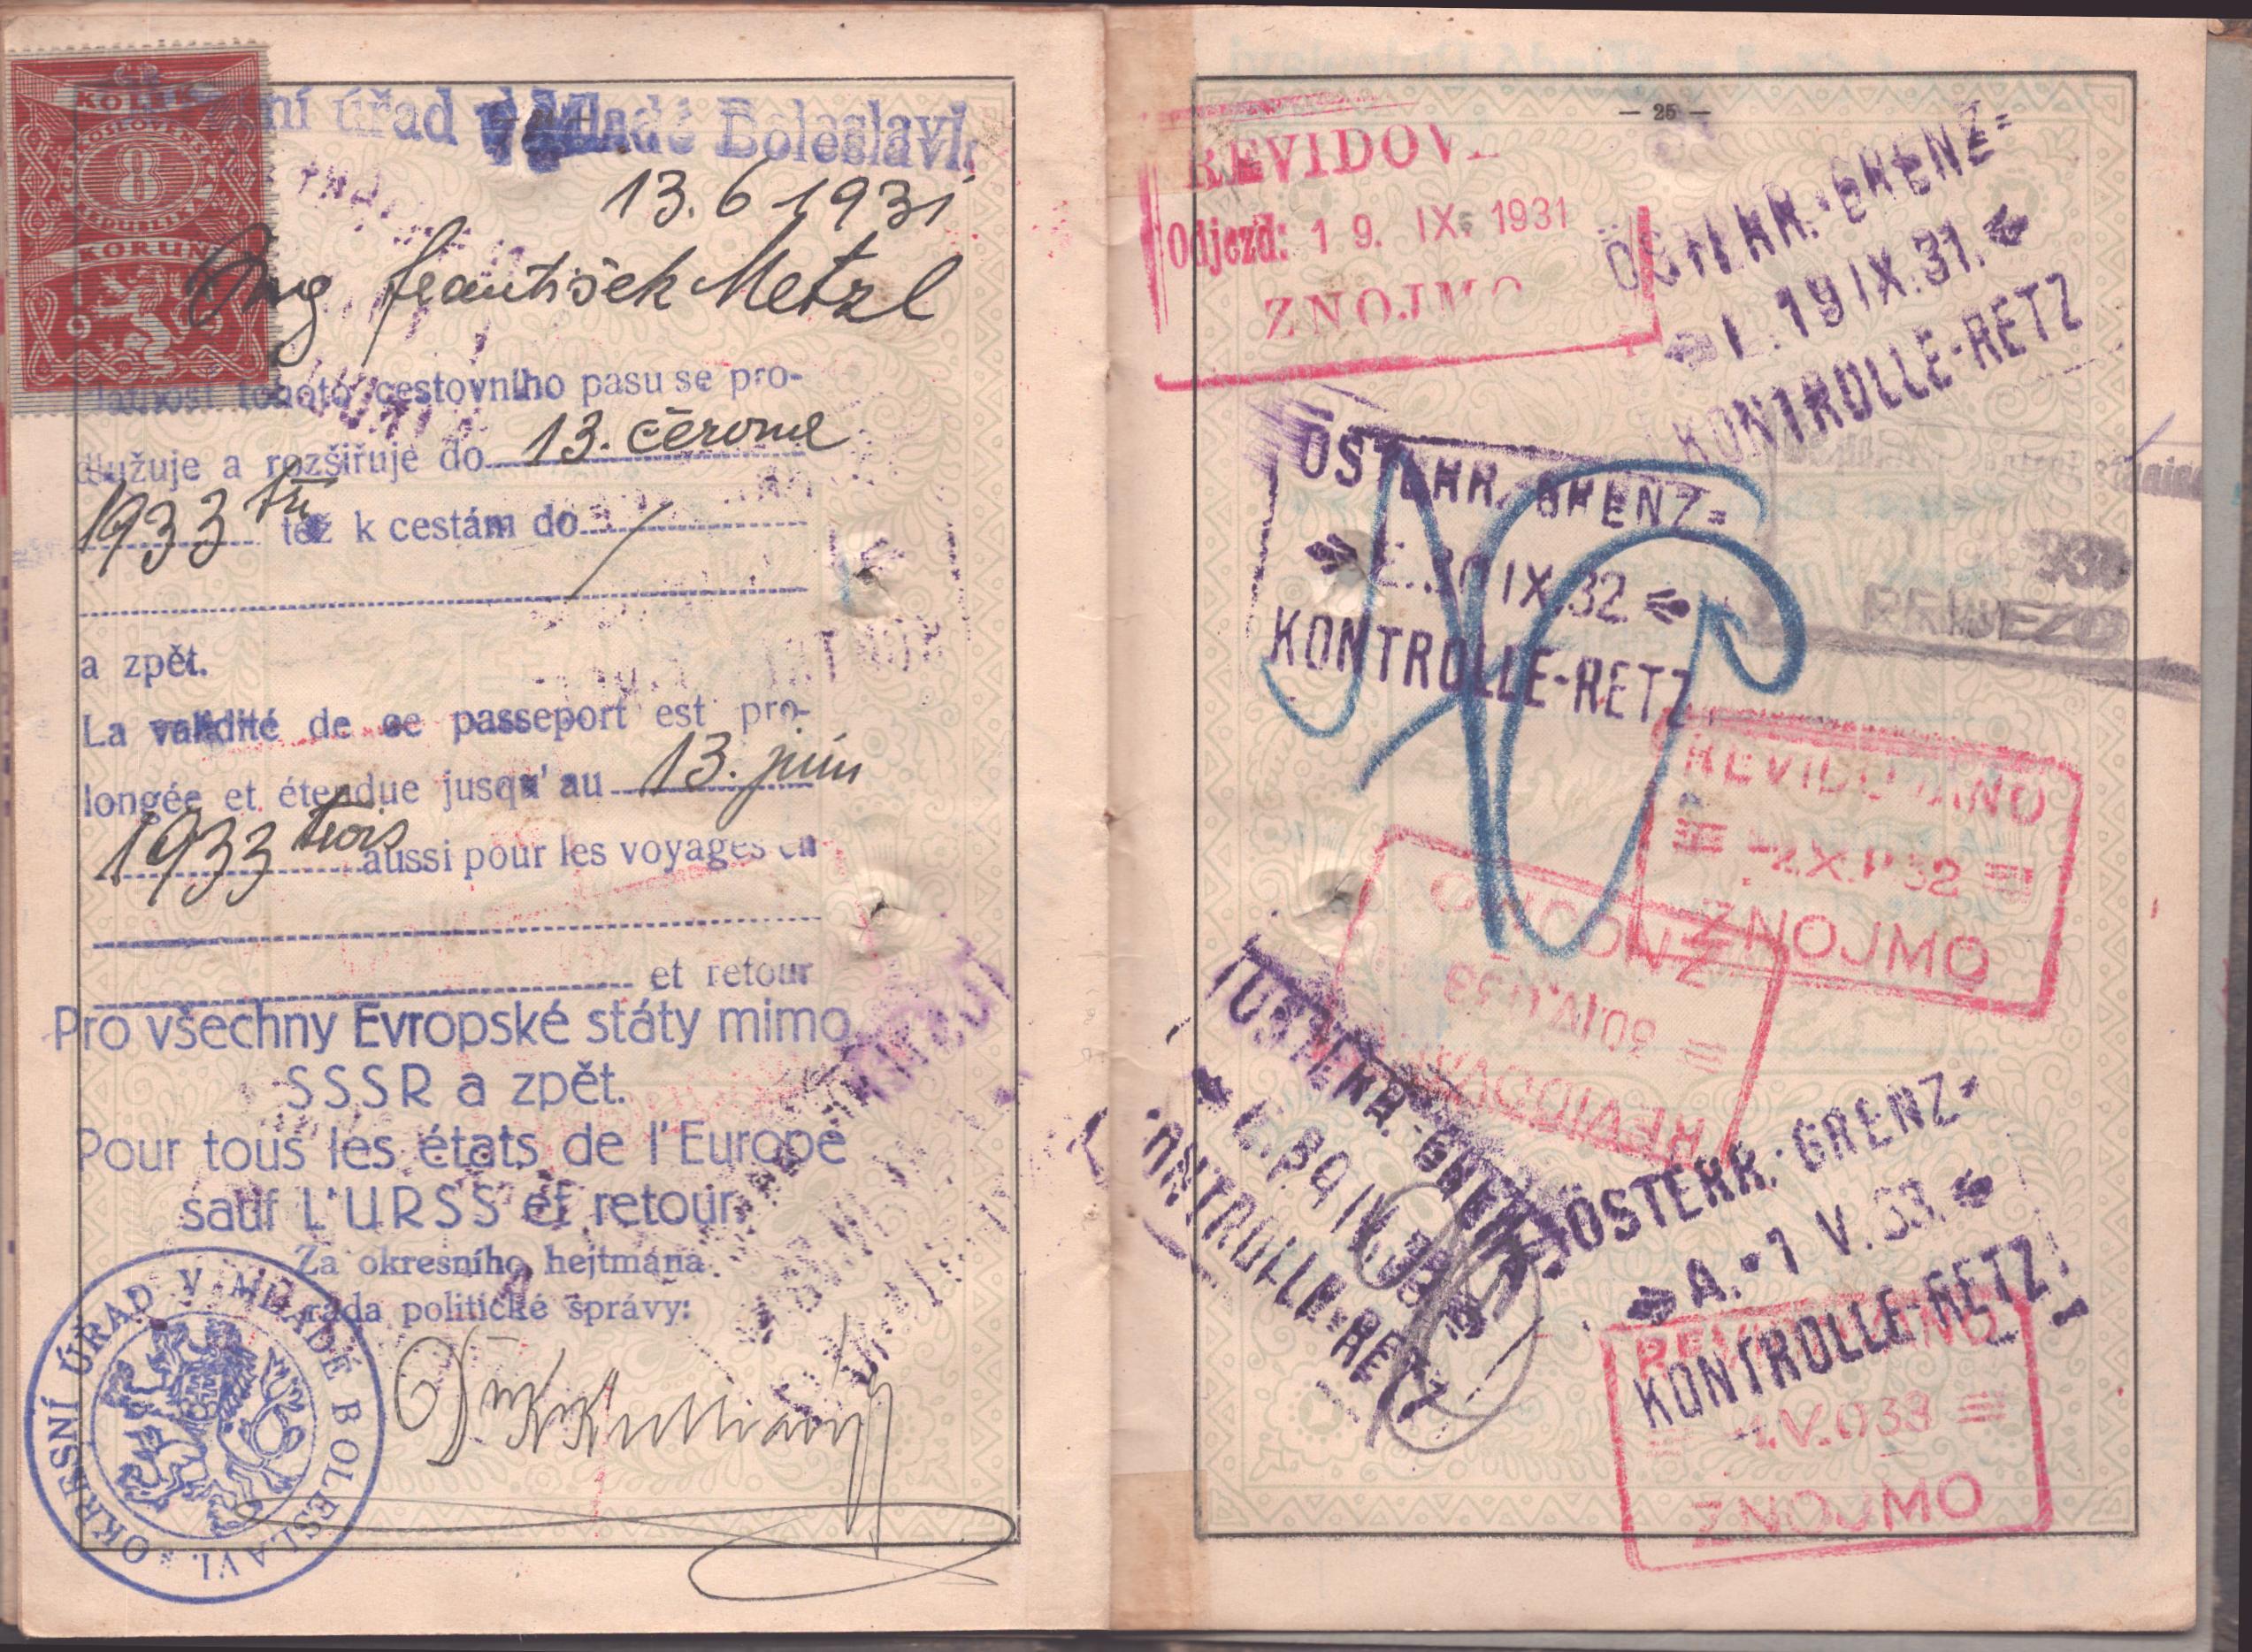 KOLEK
8
KORUN
1931
úřad v Mladé Boleslavi
13.6.1931
Ing František Metzl
Platnost tohoto cestovního pasu se pro-
dlužuje a rozšiřuje do 13. června
1933 tři též k cestám do
a zpět.
La validité de ce passeport est pro-
longée et étendue jusqu' au 13. juin
1933 trois aussi pour les voyages en
et retour
Pro všechny Evropské státy mimo
SSSR a zpět.
Pour tous les états de l'Europe
sauf L'URSS et retour
Za okresního hejtmana
rada politické správy:
OKRESNÍ ÚŘAD V MLADÉ BOLESLAVI.
— 25 —
Odjezd: 19. IX. 1931
ZNOJMO
ÖSTERR.-GRENZ-
19 IX.31.
KONTROLLE-RETZ
ÖSTERR. GRENZ-
E. 30 IX.32.
KONTROLLE-RETZ
PŘÍJEZD
REVIDOVÁNO
-2.X.1932
ZNOJMO
ZNOJMO
30.IV.033
REVIDOVÁNO
ÖSTERR.-GRENZ-
E. 30 IV.33
KONTROLLE-RETZ
ÖSTERR.-GRENZ-
A.-1 V.33.
KONTROLLE-RETZ
REVIDOVÁNO
-1.V.033
ZNOJMO